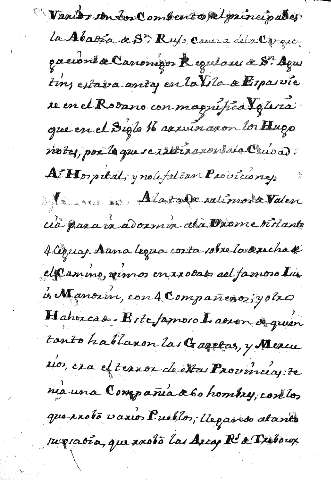 Varios son los Combentos, el principal es
la Abadia de Sn. Rufo cavera de la Congre
gacion de Canonigos Regulares de Sn. Agus
tin; estava antes en la Ysla de Espaviè
re en el Rodano con magnifica Yglesia
que en el Siglo 16 arruinaron los Hugo
notes, por lo que se retiraron à la Ciudad.
Ay Hospital, y no le faltan Proviciones
A la tarde salimos de Valen
cia para ir à dormir à la Drome distante
4 leguas. A una legua corta sobre la derecha de
el Camino, vimos enrrobado al famoso Lu
is Mandrin, con 4 Compañeros; y otro
Ahorcado. Este famoso Ladron de quien
tanto hablaron las Gazetas, y Mercu
rios, era el terror de estas Provincias: te
nia una Compañia de 60 hombres, con los
que rrobò varios Pueblos; llegando à tanto
su osadia, que rrobò las Arcas Rs. de